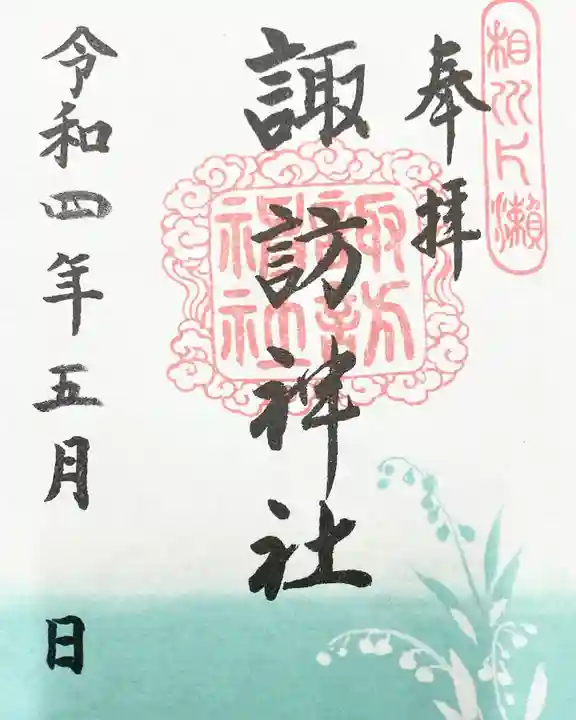 相州片瀬
奉拝
諏訪神社
諏訪神社
令和四年五月 日